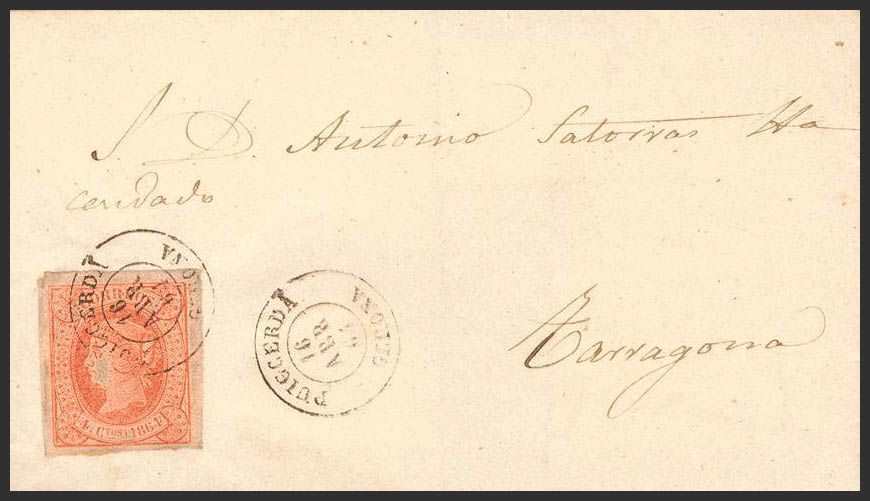 S. D Antonio Satorras Ha
cendado
Tarragona
PUIGCERDA
16
ABR
64
GERONA
PUIGCERDA
16
ABR
64
GERONA
4. CTOS 1864